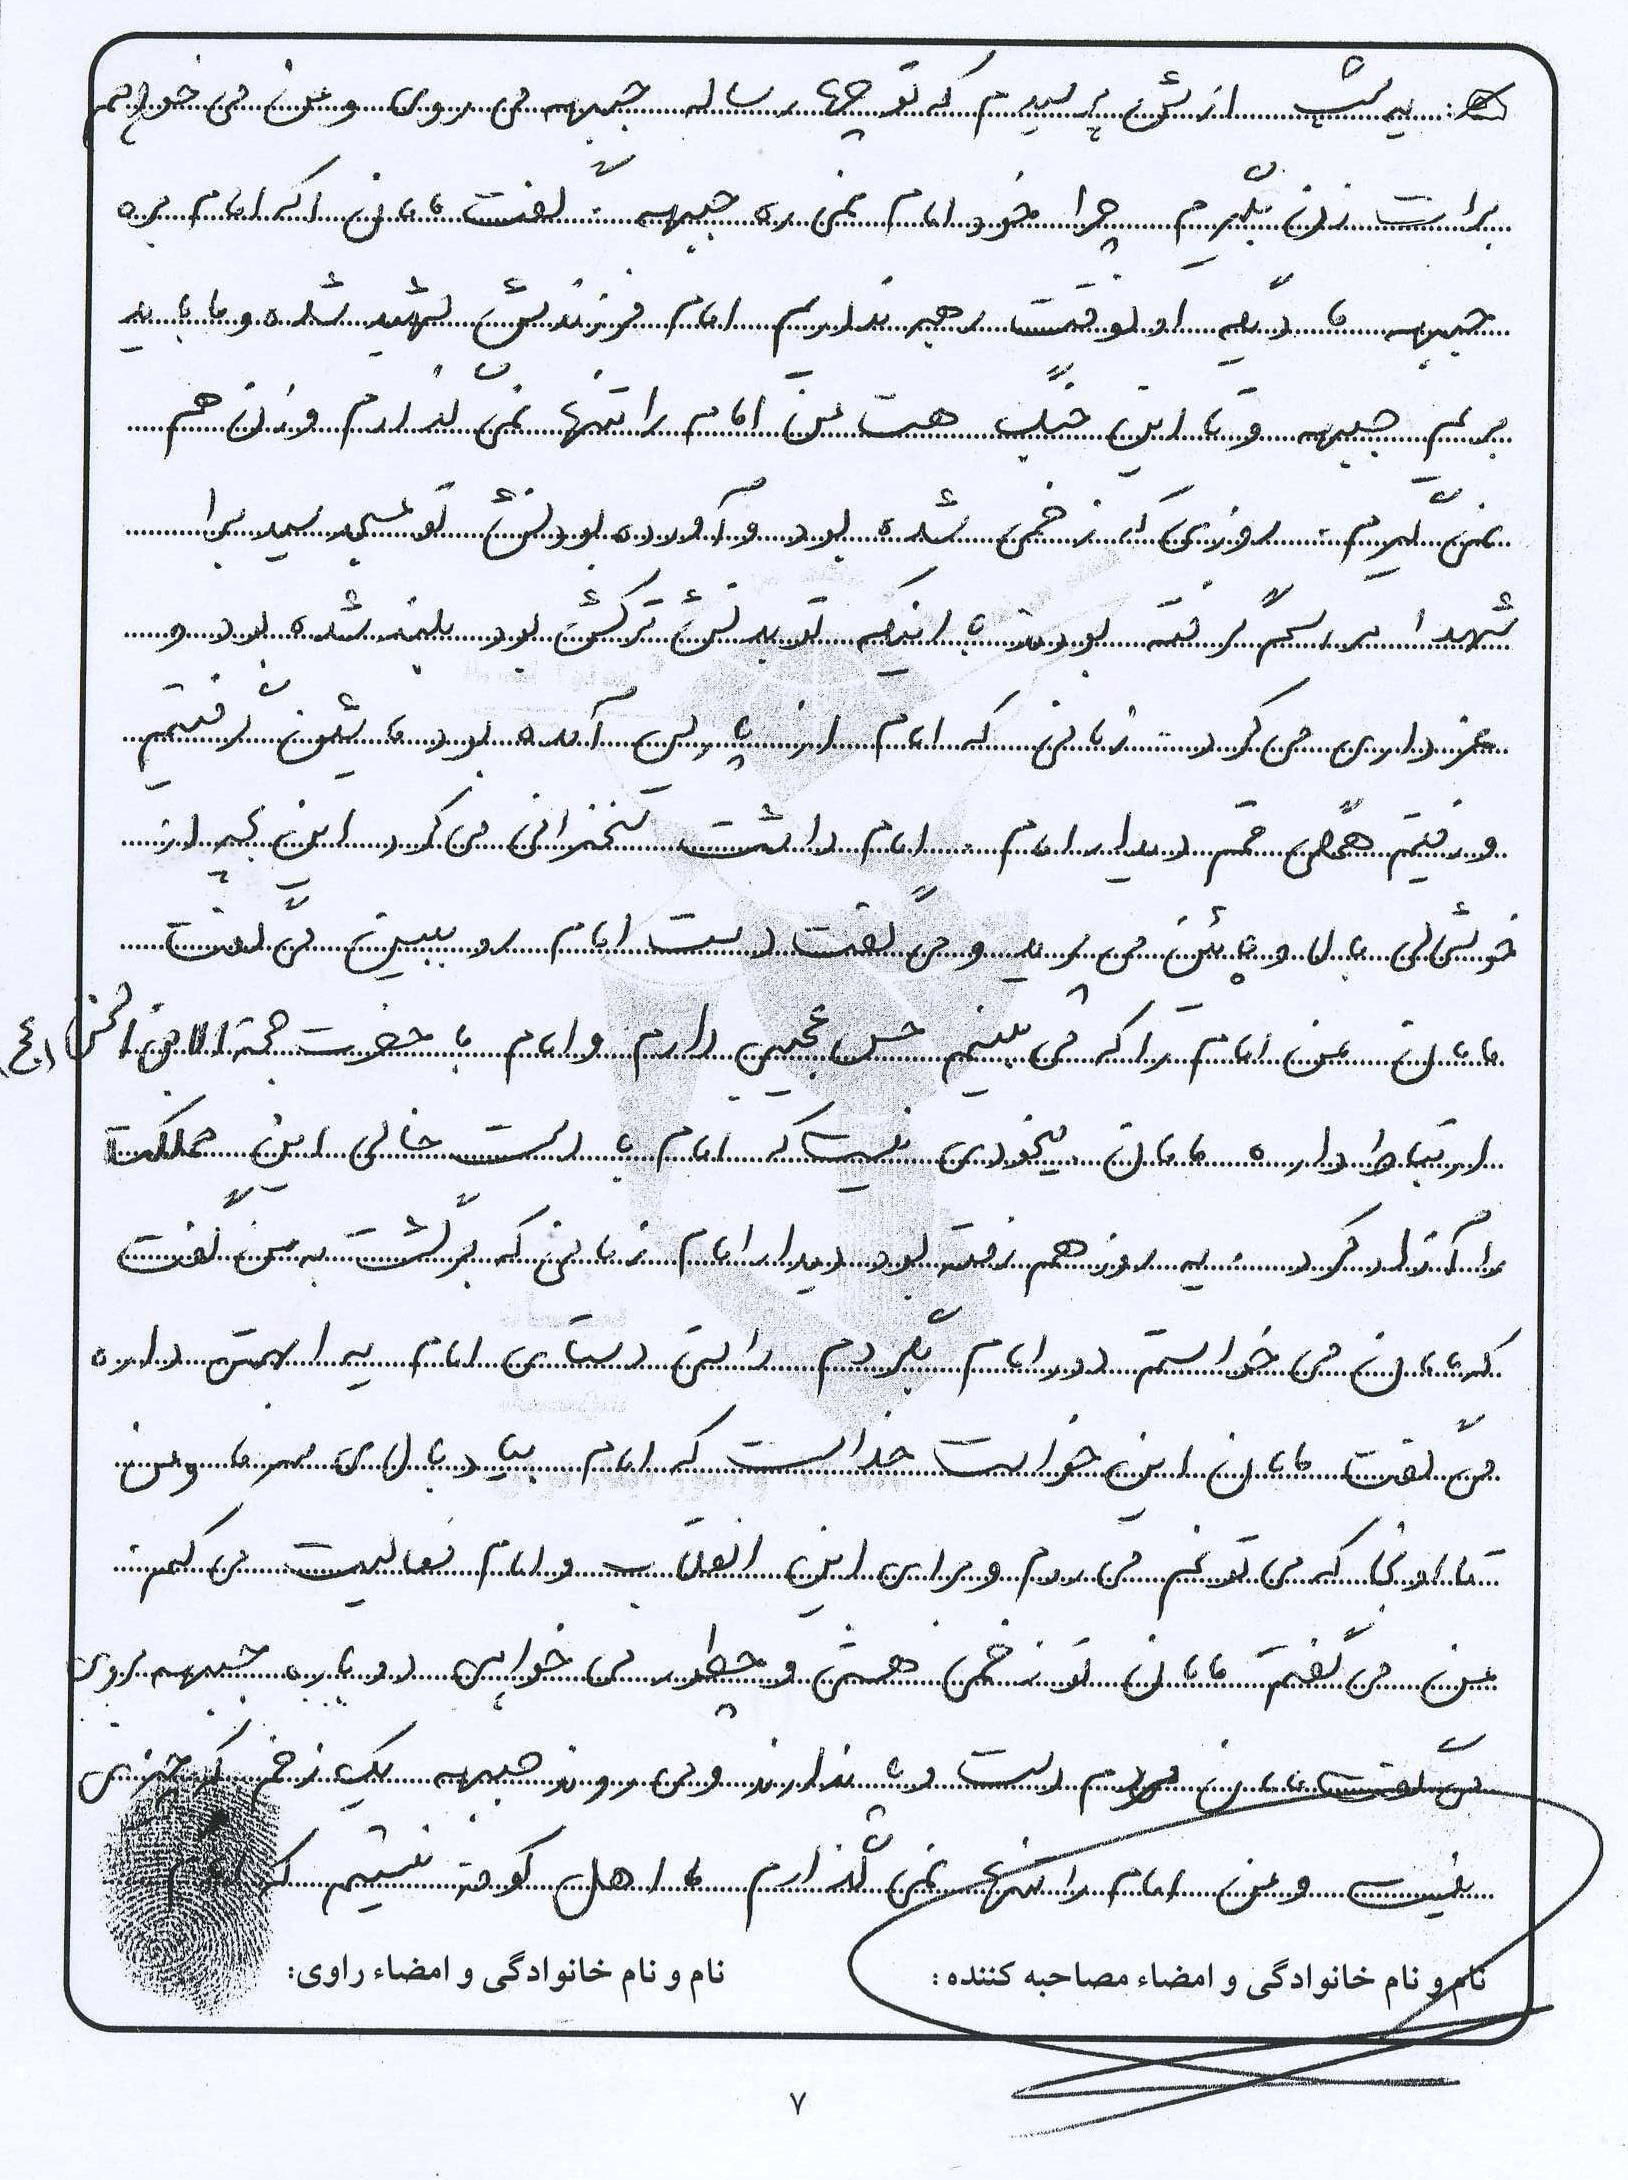 یه شب ازش پرسیدم که تو چهار ساله جبهه می روی و من می خواهم
برات زن بگیرم چرا خود امام نمی ره جبهه . گفت مامان اگه امام بره
جبهه ما دیگه اونوقت رهبر نداریم امام فرزندش شهید شده و ما باید
بریم جبهه و تا این جنگ هست من امام را تنها نمی گذارم و زن هم
نمی گیرم . روزی که زخمی شده بود و آورده بودنش تو مسجد سید برا
شهدا مراسم گرفته بودند با اینکه تو بدنش ترکش بود بلند شده بود و
عزداری می کرد . زمانی که امام از پاریس آمده بود ماشین گرفتیم
و رفتیم همگی قم دیدار امام . امام داشت سخنرانی می کرد این بچه از
خوشالی بالا و پائین می پرید و می گفت دست امام رو ببین می گفت
مامان من امام را که می بینم حس عجیبی دارم و امام با حضرت حجة ابن الحسن (عج)
ارتباط داره مامان بیخودی نیست که امام با دست خالی این مملکت
را آزاد کرد . یه روز هم رفته بود دیدار امام زمانی که برگشت به من گفت
که مامان می خواستم دور امام بگردم راستی دستای امام یه ابهتی داره
می گفت مامان این خواست خداست که امام بیاد بالای سر ما و من
تا اونجا که می تونم می روم و برای این انقلاب و امام فعالیت می کنم .
من می گفتم مامان تو زخمی هستی و چطور می خواهی دوباره جبهه بروی
می گفت مامان مردم دست و پا ندارند و می روند جبهه یک زخم که چیزی
نیست و من امام را تنها نمی گذارم ما اهل کوفه نیستیم که امام
نام و نام خانوادگی و امضاء مصاحبه کننده :
نام و نام خانوادگی و امضاء راوی:
۷